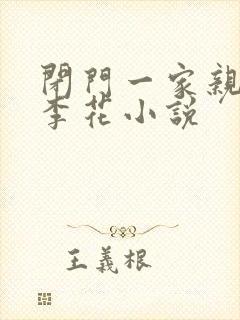 閉門一家親
李花小說
王義根